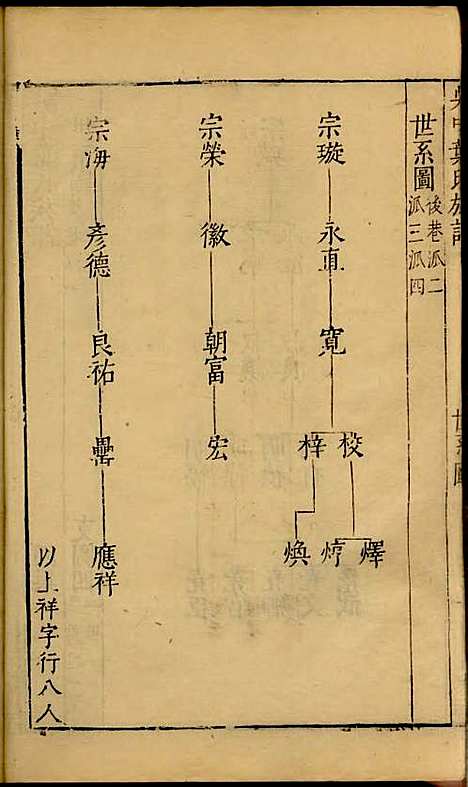 吳中葉氏族譜
世系圖
世系圖
後巷派二
派三派四
宗璇 永直 寬
校 梓
燡 焞 煥
宗榮 徽 朝富 宏
宗海 彥德 良祐 應祥
以上祥字行八人